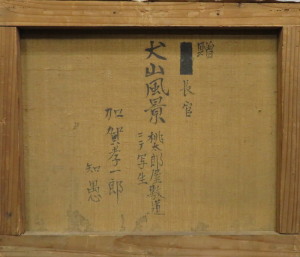 贈
長官
犬山風景
桃太郎屋敷道
ニテ写生
加賀孝一郎
知愚